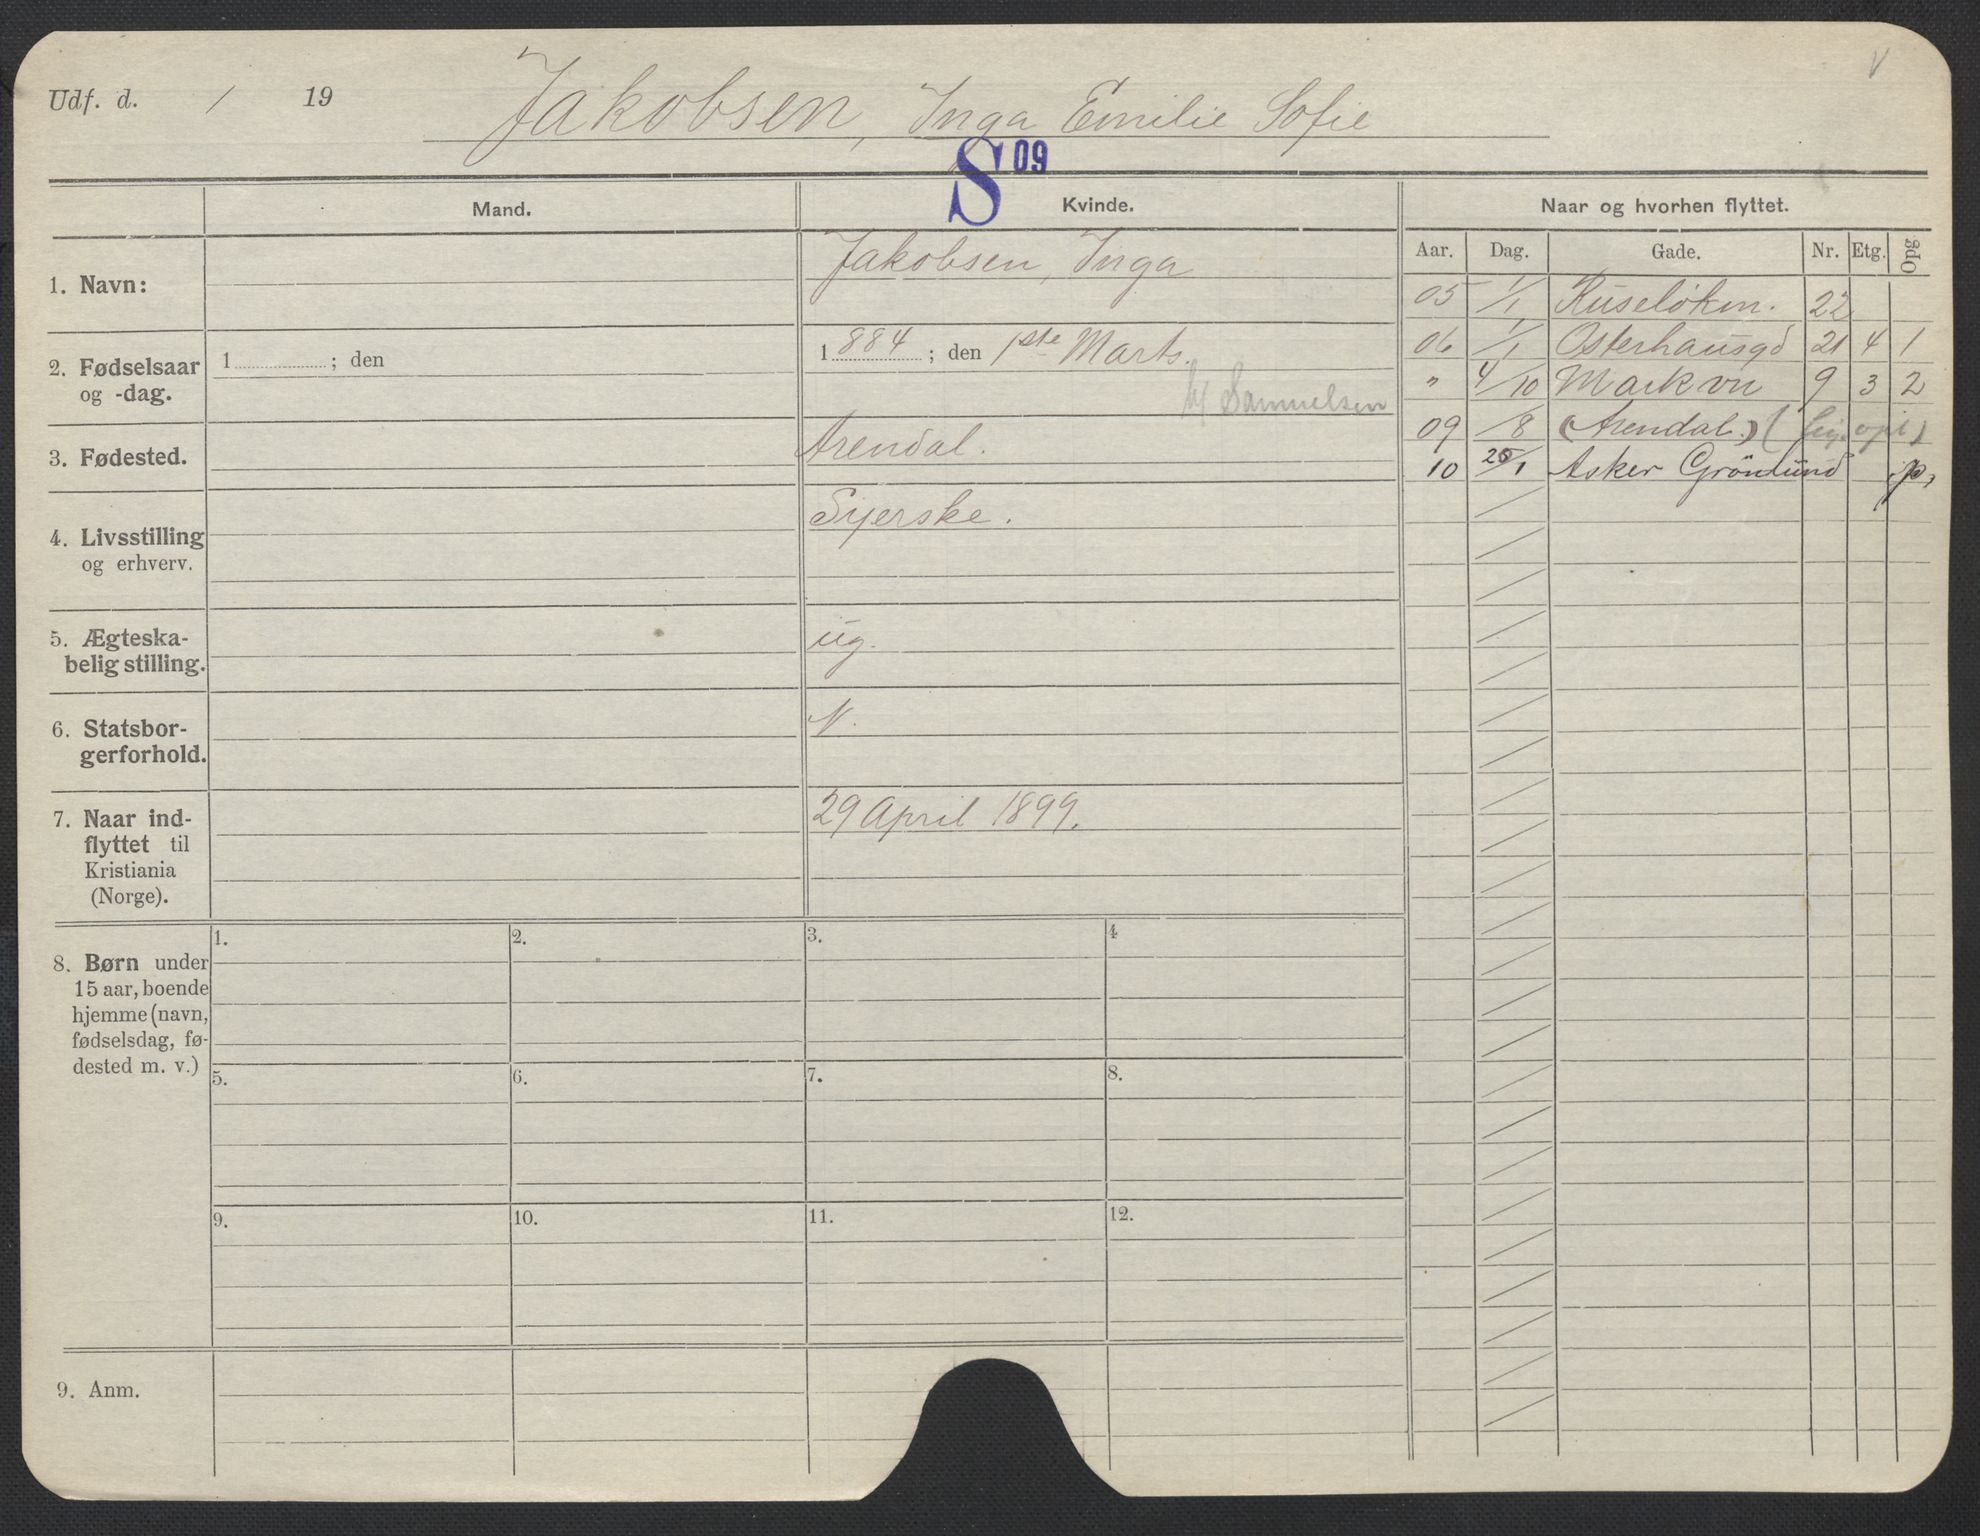 Udf. d. / 19
Jakobsen, Inga Emilie Sofie
V
S 09
Mand.
Kvinde.
Naar og hvorhen flyttet.
Aar. Dag. Gade. Nr. Etg. Opg
1. Navn:
Jakobsen, Inga
05 1/1 Ruseløkvn. 22
2. Fødselsaar
og -dag.
1 ; den
1 884 ; den 1ste Marts.
h/ Samuelsen
06 1/1 Osterhausgd 21 4 1
" 4/10 Markvn 9 3 2
3. Fødested.
Arendal.
09 /8 (Arendal.)
10 25/1 Asker Grönlund
4. Livsstilling
og erhverv.
Syerske.
5. Ægteska-
belig stilling.
ug.
6. Statsbor-
gerforhold.
N.
7. Naar ind-
flyttet til
Kristiania
(Norge).
29 April 1899.
8. Børn under
15 aar, boende
hjemme (navn,
fødselsdag, fø-
dested m. v.)
1. 2. 3. 4
5. 6. 7. 8.
9. 10. 11. 12.
9. Anm.